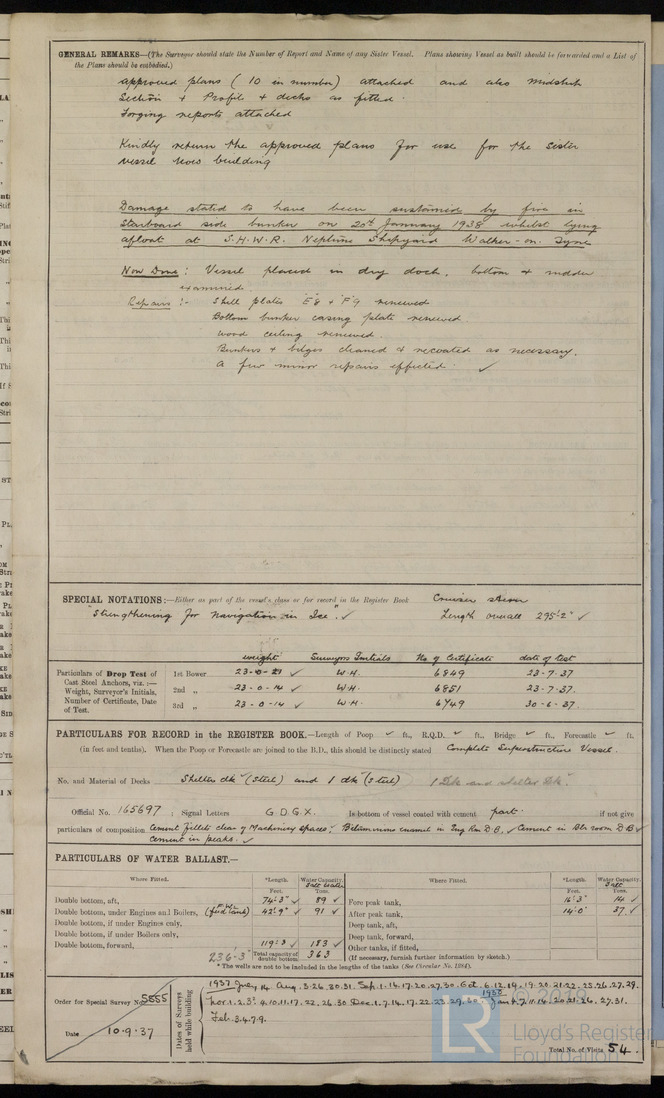 GENERAL REMARKS—(The Surveyor should state the Number of Report and Name of any Sister Vessel. Plans showing Vessel as built should be forwarded and a List of
the Plans should be embodied.)
approved plans (10 in number) attached and also midship
Section & Profile & decks as fitted.
Forging reports attached
Kindly return the approved plans for use for the sister
vessel now building
Damage stated to have been sustained by fire in
Starboard side bunker on 20th January 1938 whilst lying
afloat at S.H.W.R. Neptune Shipyard Walker-on-Tyne
Now Done: Vessel placed in dry dock, bottom & rudder
examined.
Repairs:- Shell plates E8 & F9 renewed
Bottom bunker casing plate renewed
Wood ceiling renewed.
Bunkers & bilges cleaned & recoated as necessary.
A few minor repairs effected. ✓
SPECIAL NOTATIONS:—Either as part of the vessel's class or for record in the Register Book Cruiser stern
"Strengthening for Navigation in Ice". ✓ Length overall 295'-2" ✓
weight Surveyors Initials No of Certificate date of test
Particulars of Drop Test of
Cast Steel Anchors, viz.:—
Weight, Surveyor's Initials,
Number of Certificate, Date
of Test.
1st Bower 23-0-21 ✓ W.H. 6849 23-7-37
2nd " 23-0-14 ✓ W.H. 6851 23-7-37.
3rd " 23-0-14 ✓ W.H. 6749 30-6-37.
PARTICULARS FOR RECORD in the REGISTER BOOK.—Length of Poop ✓ ft., R.Q.D. ✓ ft., Bridge ✓ ft., Forecastle ✓ ft.
(in feet and tenths). When the Poop or Forecastle are joined to the B.D., this should be distinctly stated Complete Superstructure Vessel.
No. and Material of Decks Shelter dk (steel) and 1 dk (steel) 1 Dk and Shelter Dk.
Official No. 165697 ; Signal Letters G.D.G.X. Is bottom of vessel coated with cement part. if not give
particulars of composition Cement fillets clear of Machinery spaces; Bituminous enamel in Eng Rm D.B. ✓ Cement in Blr room D B ✓
Cement in peaks. ✓
PARTICULARS OF WATER BALLAST.—
Where Fitted. *Length. Water Capacity. Where Fitted. *Length. Water Capacity.
Feet. Salt Water Tons. Feet. Salt Tons.
Double bottom, aft, 74'-3" ✓ 89 ✓ Fore peak tank, 16'-3" 14 ✓
Double bottom, under Engines and Boilers, (feed tank) 42'-9" ✓ 91 ✓ After peak tank, 14'-0" 37 ✓
Double bottom, if under Engines only, Deep tank, aft,
Double bottom, if under Boilers only, Deep tank, forward,
Double bottom, forward, 119'-3 ✓ 183 ✓ Other tanks, if fitted,
236'-3" Total capacity of double bottom 363 (If necessary, furnish further information by sketch.)
* The walls are not to be included in the lengths of the tanks (See Circular No. 1284).
Order for Special Survey No. 5555
Date 10.9.37
Dates of Surveys
held while building
1937 July 14 Aug. 3.26.30.31. Sep. 1.14.17.20.27.30. Oct. 6.12.14.19.20.21.22.25.26.27.29.
Nov. 1.2.3.4.10.11.17.22.26.30 Dec. 1.7.14.17.22.23.29.30. 1938 Jan 4.7.11.14.20.21.26.27.31.
Feb. 3.4.7.9.
Total No. of Visits 54.
© 2019
LR
Lloyd's Register
Foundation